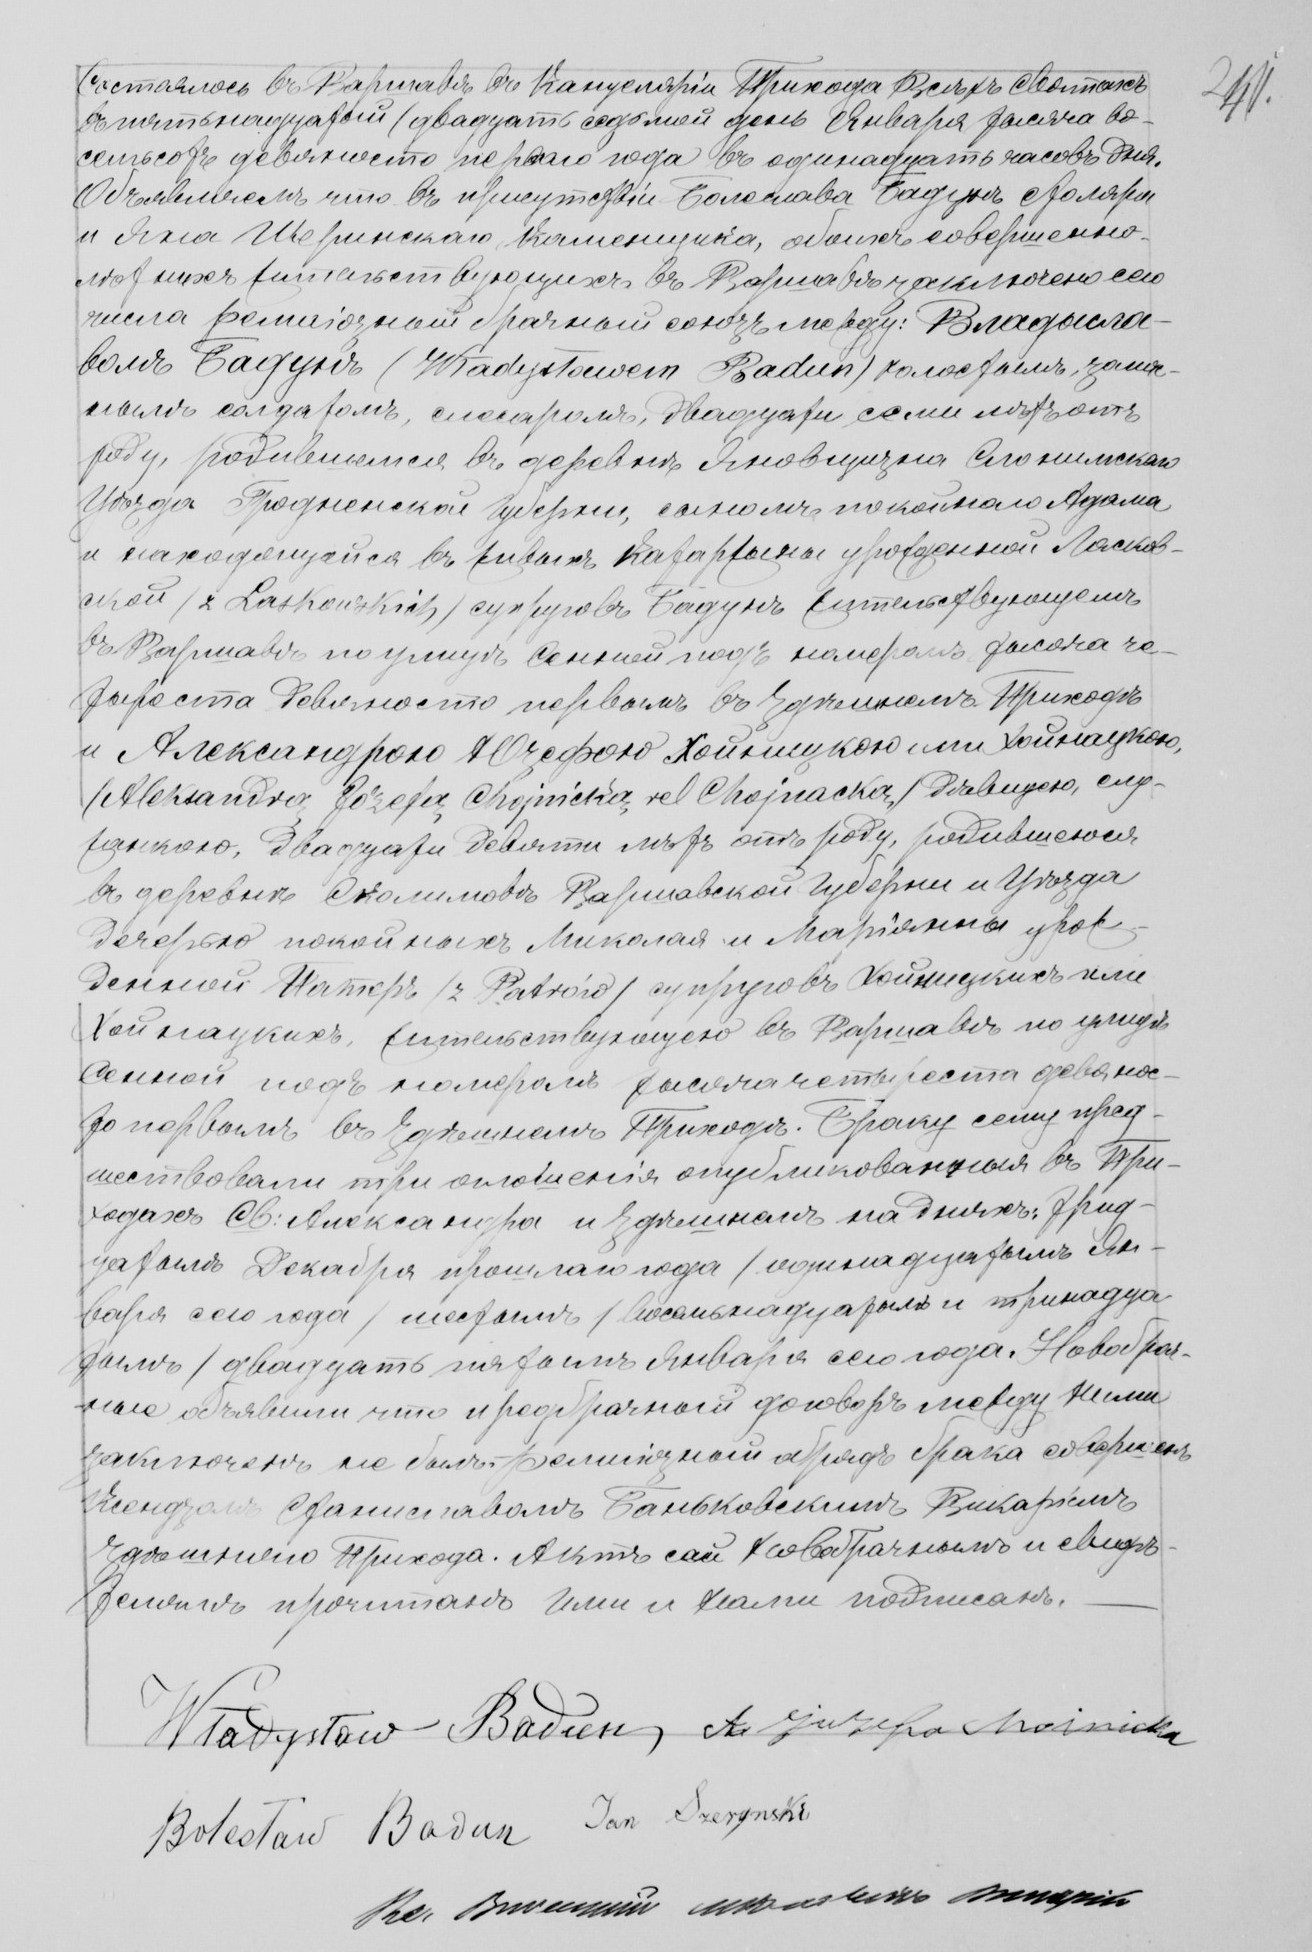 241.
Состоялось въ Варшавѣ въ Канцеляріи Прихода Всѣхъ Святыхъ
въ пятьнадцатый / двадцать седьмой день Января тысяча во-
семьсотъ девяносто перваго года въ одинадцать часовъ дня.
Объявляемъ что въ присутствіи Болеслава Бадунъ столяра
и Яна Щеринскаго каменщика, обоихъ совершенно-
лѣтнихъ жительствующихъ въ Варшавѣ заключено сего
числа религіозный брачный союзъ между: Владысла-
вомъ Бадунъ (Władysławem Badun) холостымъ, запас-
нымъ солдатомъ, слесаремъ, двадцати семи лѣтъ отъ
роду, родившемся въ деревнѣ Яновщизна Слонимскаго
Уѣзда Гродненской Губерніи, сыномъ покойнаго Адама
и находящейся въ живыхъ Катаржыны урожденной Ласков-
ской / z Laskowskich / супруговъ Бадунъ жительствующемъ
въ Варшавѣ по улицѣ Сенной подъ номеромъ тысяча че-
тыреста девяносто первымъ въ здѣшнемъ Приходѣ
и Александрою Юзефою Хойницкою или Хойнацкою,
/ Aleksandrą Józefą Chojnicką vel Chojnacką / дѣвицею, слу-
жанкою, двадцати девяти лѣтъ отъ роду, родившеюся
въ деревнѣ Сколимовѣ Варшавской Губерніи и Уѣзда
дочерью покойныхъ Миколая и Маріянны урож-
денной Патеръ / z Patrów / супруговъ Хойницкихъ или
Хойнацкихъ, жительствующею въ Варшавѣ по улицѣ
Сенной подъ номеромъ тысяча четыреста девянос-
то первымъ въ здѣшнемъ Приходѣ. Браку сему пред-
шествовали три оглашенія опубликованныя въ При-
ходахъ Св: Александра и здѣшнемъ на дняхъ: трид-
цатымъ Декабря прошлаго года / одинадцатымъ Ян-
варя сего года / шестымъ / восемьнадцатымъ и тринадца
тымъ / двадцать пятымъ Января сего года. Новобрач-
ные объявили что предбрачный договоръ между ними
заключенъ не былъ. Религіозный обрядъ брака совершенъ
Ксендзомъ Станиславомъ Баньковскимъ Викаріемъ
здѣшняго Прихода. Актъ сей Новобрачнымъ и свидѣ-
телямъ прочитанъ Ими и Нами подписанъ. —
Władysław Badun, A Juzefa Hojnicka
Bolesław Badun Jan Szerynski
Кс.